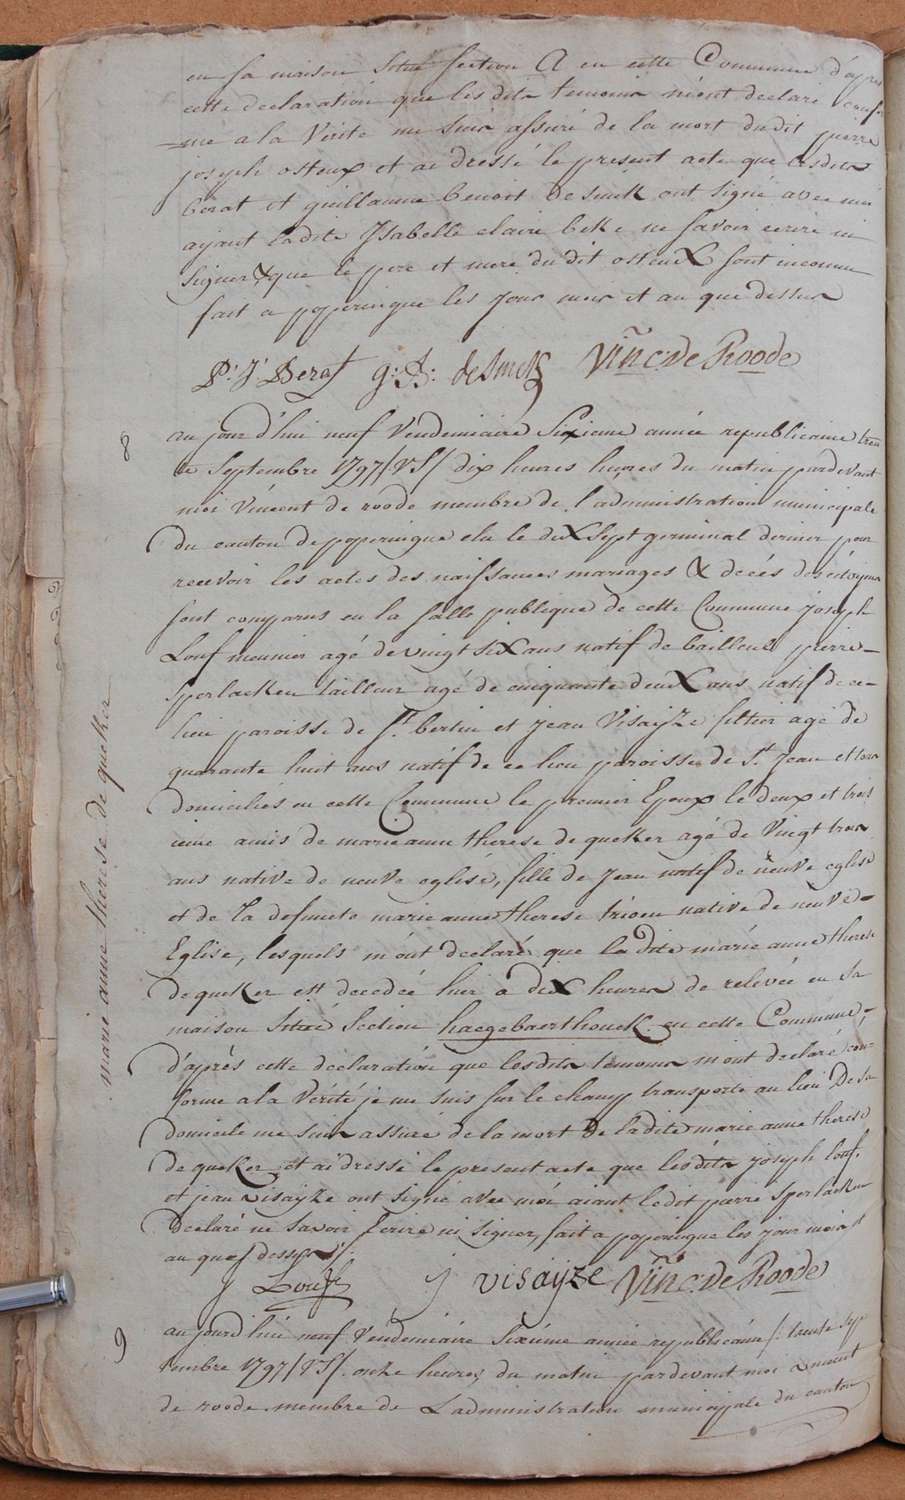 en sa maison situé section A en cette Commune d'après
cette declaration que les dits temoins m'ont declaré confor
-me a la verité me suis assuré de la mort du dit pierre
joseph osteux et ai dressé le present acte que lesdits
berat et guillaume benoit desmek ont signé avec moi
ayant ladite Ysabelle claire beke ne savoir ecrire ni
signer & que le pere et mere du dit osteux sont inconnu
fait a poperingue les jour mois et an que dessus
P: J: Berat g: B: desmek Vinc: De Roode
8
au jourd'hui neuf Vendemiaire Sixieme année republicaine trente
Septembre 1797 /VS/ dix heures heures du matin pardevant
moi Vincent de roode membre de l'administration municipale
du canton de poperingue elu le dix sept germinal dernier pour
recevoir les actes des naissances mariages & décès des citoyens
sont comparus en la salle publique de cette Commune joseph
Louf meunier agé de vingt six ans natif de bailleul pierre
sperlaeken tailleur agé de cinquante deux ans natif de ce
lieu paroisse de St. bertin et jean Visaijze filtier agé de
quarante huit ans natif de ce lieu paroisse de St. Jean et tous
domiciliés en cette Commune le premier Epoux le deux et trois
ieme amis de marie anne therese de queker agé de Vingt trois
ans native de neuve eglise, fille de Jean natif de neuve eglise
et de la defunte marie anne therese trioen native de neuve
Eglise, lesquels m'ont declaré que la dite marie anne therese
de queker est decedeé hier a dix heures de relivée en sa
maison situé Section haegebaerthouck en cette Commune,
d'après cette déclaration que lesdits temoins m'ont declaré con-
forme a la Vérité je me suis sur le champ transporté au lieu De sa
domicile me suis assuré de la mort de ladite marie anne therese
de queker et ai dressé le present acte que lesdits joseph louf
et jean visaijze ont signé avec moi aiant ledit pierre sperlaeken
declaré ne savoir Ecrire ni signer, fait a poperingue les jour mois et
an que dessus
J Louf J visaijze Vinc: De Roode
marie anne therese de queker
9
aujourd'hui neuf Vendemiaire Sixieme année republicaine /: trente sep
tembre 1797 /VS/ onze heures du matin pardevant moi vincent
de roode membre de L'administration municipale du canton